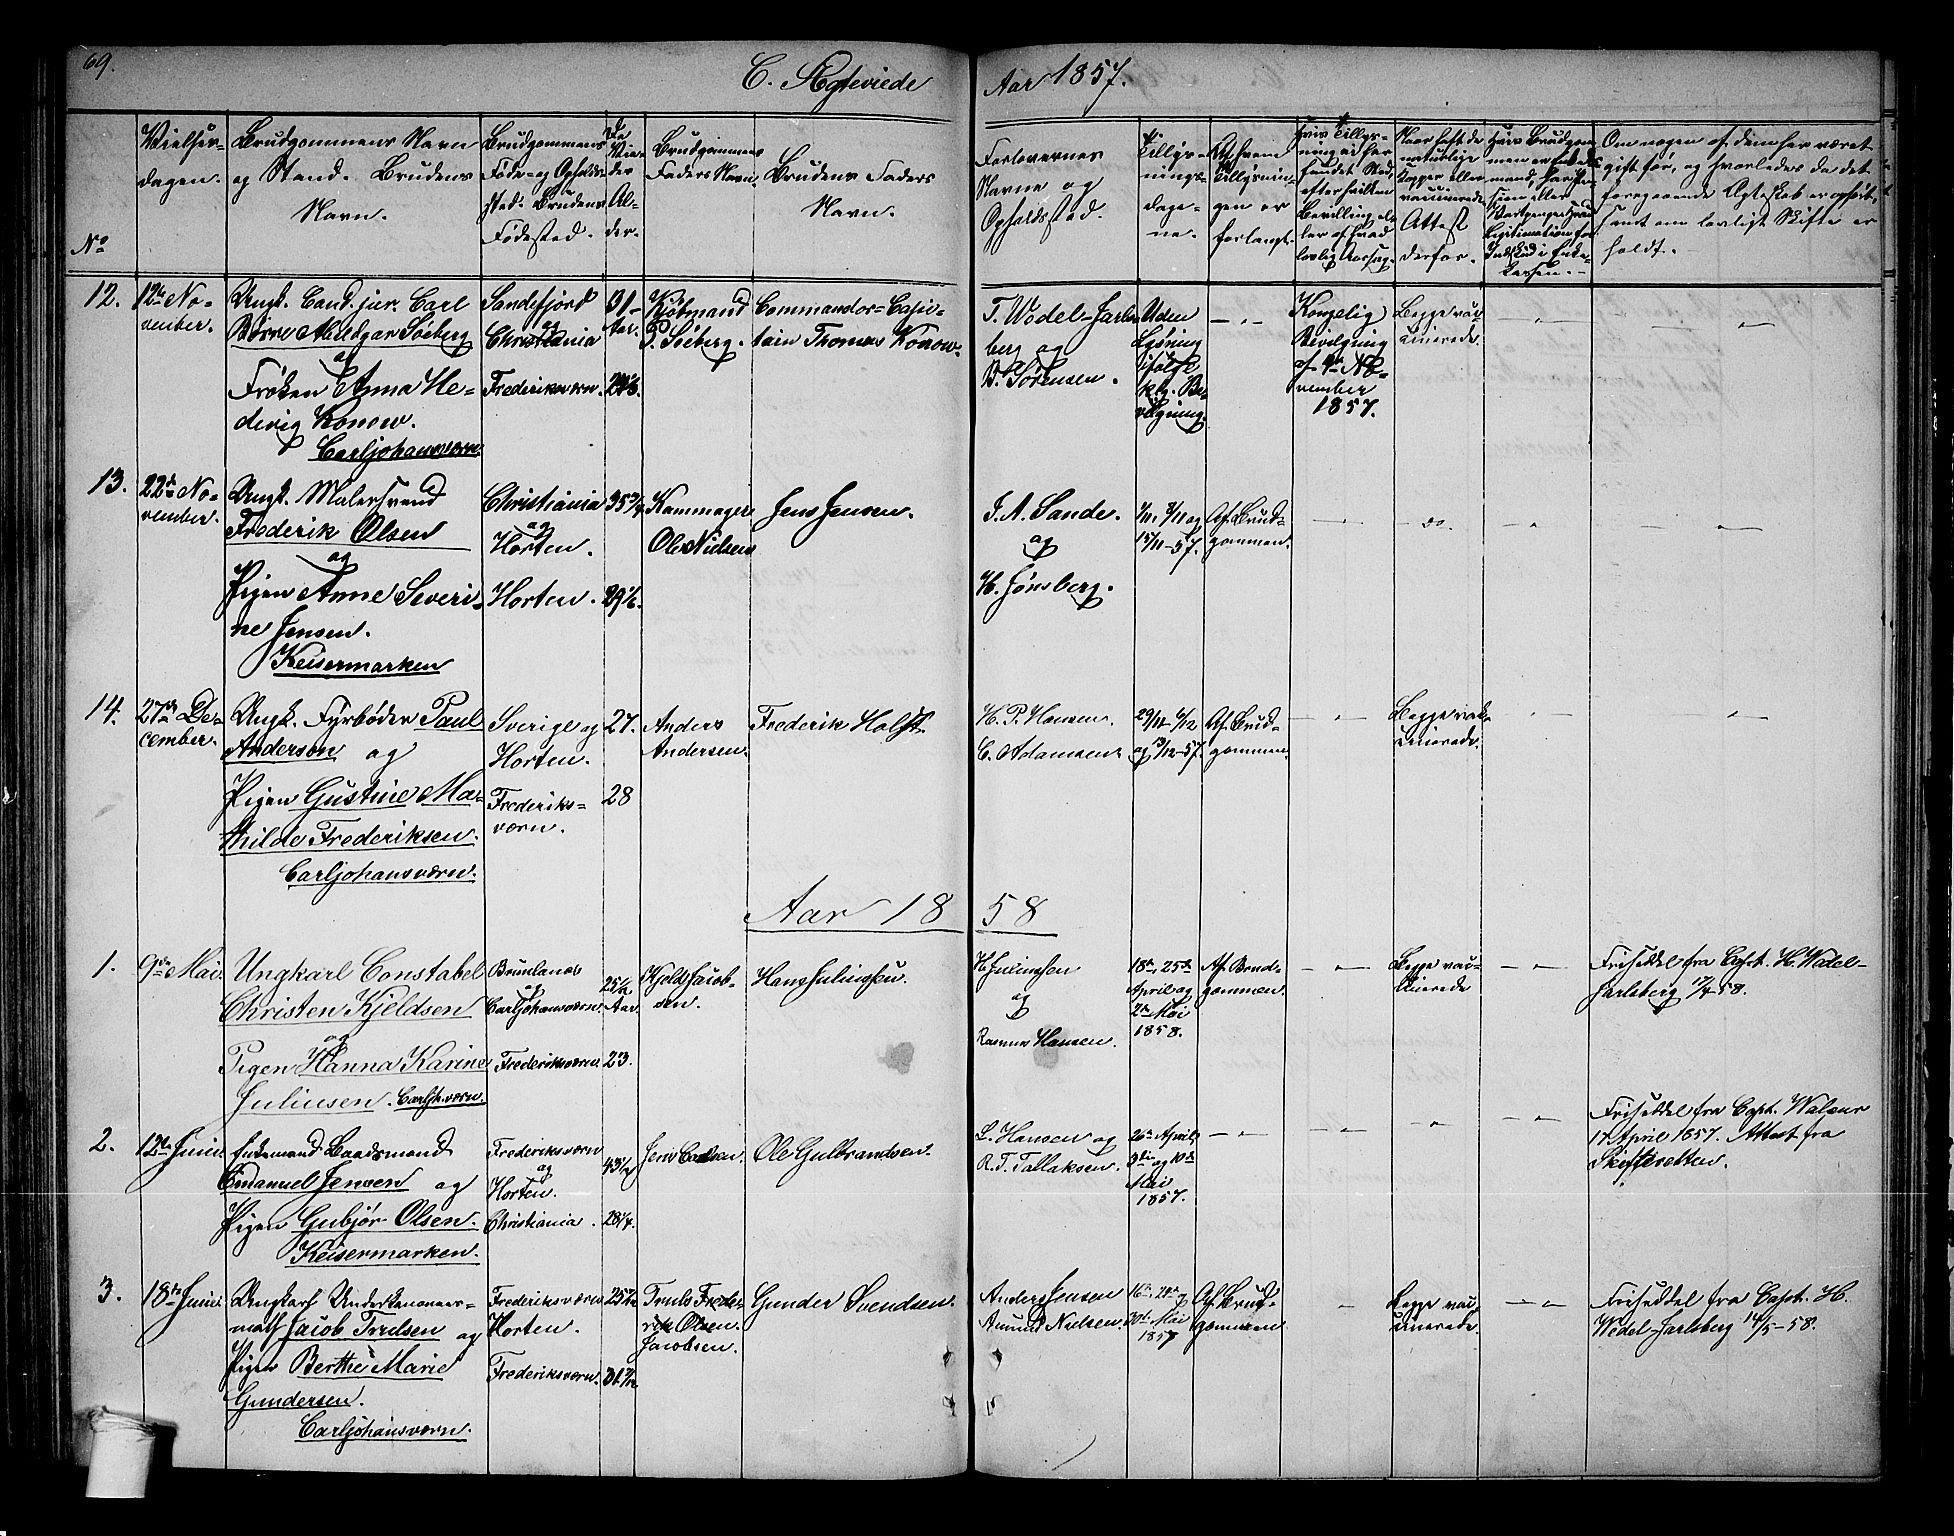 69.
C. Ægteviede
Aar 1857.
No
Vielses-
dagen.
Brudgommens Navn
og Stand. Brudens
Navn.
Brudgommens
Føde- og Opholds-
sted. Brudens
Fødested.
De
Vie-
des
Al-
der.
Brudgommens
Faders Navn.
Brudens Faders
Navn.
Forlovernes
Navne og
Opholdssted.
Tillys-
nings-
dage-
ne.
Af hvem
Tillysnin-
gen er
forlangt.
Hvis Tillys-
ning ei har
fundet Sted,
efter hvilken
Bevilling el-
ler af hvad
lovlig Aarsag.
Naar havt de
naturlige
Kopper eller
vaccinerede
Attest
derfor.
Om nogen af dem har været
gift før, og hvorledes da det
foregaaende Ægteskab er ophørt,
samt om lovligt Skifte er
holdt.
12.
12te No-
vember.
Ungk. Cand. jur. Carl
Børre Søeberg
og
Frøken Anna He-
devig Konow.
Carljohansværn.
Sandefjord
og
Christiania
Frederiksværn.
31
Aar.
Kjøbmand
P. Søeberg.
Commandør-Capi-
tain Thomas Konow.
T. Wedel-Jarls-
berg og
Sørensen.
Uden
Lysning
ifølge
kgl. Be-
vilgning.
— " —
Kongelig
Bevilgning
af 4de No-
vember
1857.
Begge vac-
cinerede.
— " —
— " —
13.
22de No-
vember.
Ungk. Malersvend
Frederik Olsen
og
Pigen Anne Severi-
ne Jensen.
Keisermarken
Christiania
og
Horten.
Horten.
35 3/4
29 1/2.
Kammager
Ole Nielsen
Jens Jensen.
J. A. Sande.
og
H. Jønsberg.
1/11. 8/11 og
15/11-57.
Af Brud-
gommen.
— " —
do.
— " —
— " —
14.
27de De-
cember.
Ungk. Fyrbøder Paul
Anderson og
Pigen Gustine Ma-
thilde Frederiksen.
Carljohansværn.
Sverige og
Horten.
Frederiks-
værn.
27.
28
Anders
Andersen.
Frederik Holst.
H. P. Hansen.
C. Adamsen.
29/11 6/12
og 13/12-57.
Af Brud-
gommen.
— " —
Begge vak-
cinerede.
— " —
— " —
Aar 1858
1.
9de Mai.
Ungkarl Constabel
Christen Kjeldsen
og
Pigen Hanna Karine
Juliusen. Carljh.værn.
Brunlanæs
og
Carljohansværn.
Frederiksværn.
25 1/2
Aar.
23.
Kjeld Jacob-
sen.
Hans Juliussen.
H. Juliussen
og
Rasmus Hansen.
18de, 25de
April og
2den Mai
1858.
Af Brud-
gommen.
— " —
Begge vac-
cinerede
— " —
Friseddel fra Capt. H. Wedel-
Jarlsberg 17/4-58.
2.
12te Juni
Enkemand Baadsmand
Emanuel Jensen og
Pigen Gubjør Olsen.
Keisermarken.
Frederiksværn
og
Horten.
Christiania.
43 1/2
28 1/4.
Ole Gulbrandsen.
L. Hansen og
R. T. Tallaksen.
26de April
3die og 10de
Mai
1857.
— " —
— " —
— " —
— " —
Friseddel fra Capt.
17 April 1857. Attest fra
Skifteretten.
3.
18de Juni
Ungkarl Underkanoneer-
math Jacob Trulsen og
Pigen Berthe Marie
Gundersen.
Carljohansværn.
Frederiksværn
Horten.
Frederiksværn.
Truls Frede-
rik Olsen.
Jacobsen.
Gunder Svendsen.
Anders Jensen
Amund Nielsen.
16de, 24de og
30te Mai
1857
Af Brud-
gommen.
—
Begge vac-
cinerede.
— " —
Friseddel fra Capt. H.
Wedel-Jarlsberg 14/5-58.